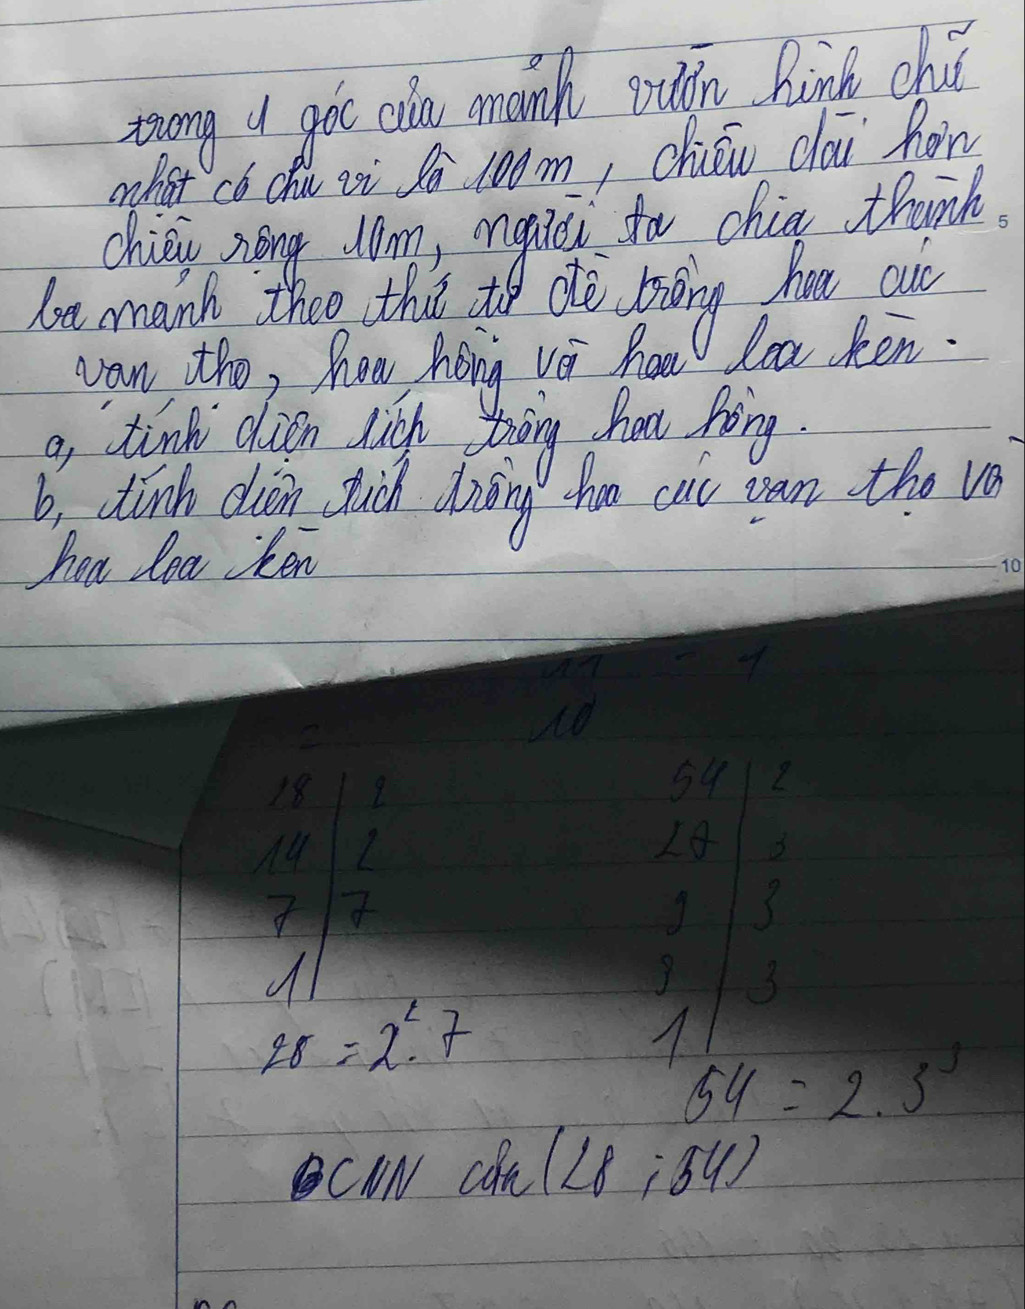 trong 1 góc của mảnh vườn hình chữ
nhật có chu vi là 100m, chiều dài hơn
chiều rộng 10m, người ta chia thành
5
ba mảnh theo thứ tự để trồng hoa cúc
vạn thọ, hoa hồng và hoa loa kèn.
a, tính diện tích trồng hoa hồng.
b, tính diện tích trồng hoa cúc vạn thọ và
hoa loa kèn
10
11 - 1
= 10
28 | 2 54 | 2
14 | 2 27 | 3
7 | 7 9 | 3
1 3 | 3
28 = 2². 7 1
54 = 2. 3³
BCNN của (28 ; 54)